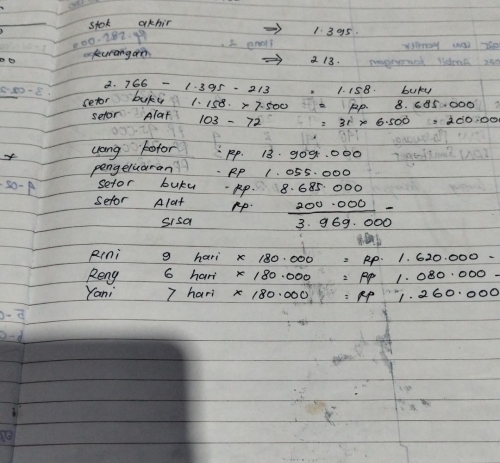 Stok akhir ⇒ 1.395.
Kurangan ⇒ 213.
2.766 - 1.395 - 213 = 1.158. buku
Setor buku 1.158 × 7.500 = Rp. 8.685.000
Setor Alat 103 - 72 = 31 × 6.500 = 200.000
Uang kotor = Rp. 13.909.000
pengeluaran = Rp 1.055.000
Setor buku - Rp. 8.685.000
Setor Alat Rp. 200.000 -
Sisa 3.969.000
Rini 9 hari × 180.000 = Rp. 1.620.000 -
Reng 6 hari × 180.000 = Rp 1.080.000 -
Yani 7 hari × 180.000 = Rp 1.260.000